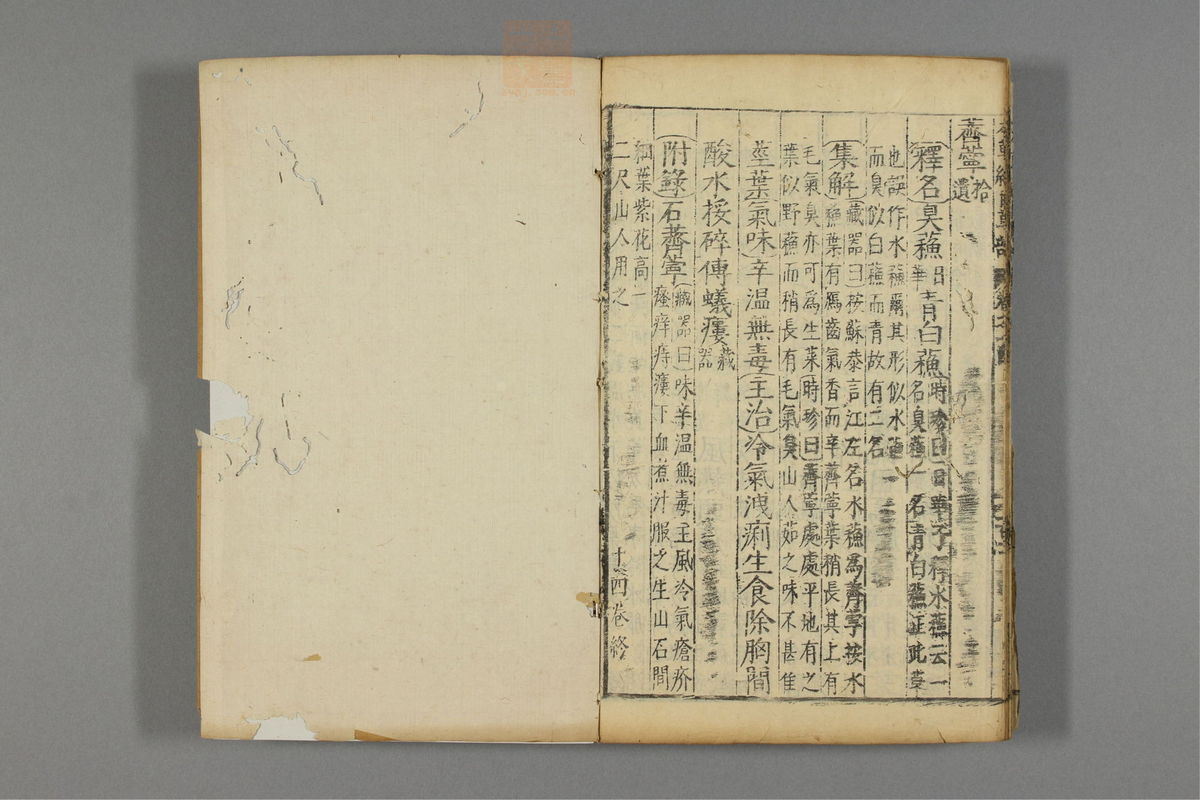 薺薴 拾遺
釋名臭蘓 日華 青白蘓 時珍曰日華子釋水蘓云一
名臭蘓一名青白蘓正此草
也誤作水蘓爾其形似水蘓
而臭似白蘓而青故有二名
集解 藏器曰按蘇恭言江左名水蘓為薺薴按水
蘓葉有鴈齒氣香而辛薺薴葉稍長其上有
毛氣臭亦可為生菜時珍曰薺薴處處平地有之
葉似野蘓而稍長有毛氣臭山人茹之味不甚佳
莖葉氣味辛温無毒主治冷氣洩痢生食除胸間
酸水挼碎傅蟻瘻 藏器
附錄石薺薴 藏器曰味辛温無毒主風冷氣瘡疥
瘙痒痔瘻下血煮汁服之生山石間
細葉紫花高一
二尺山人用之
十四卷終